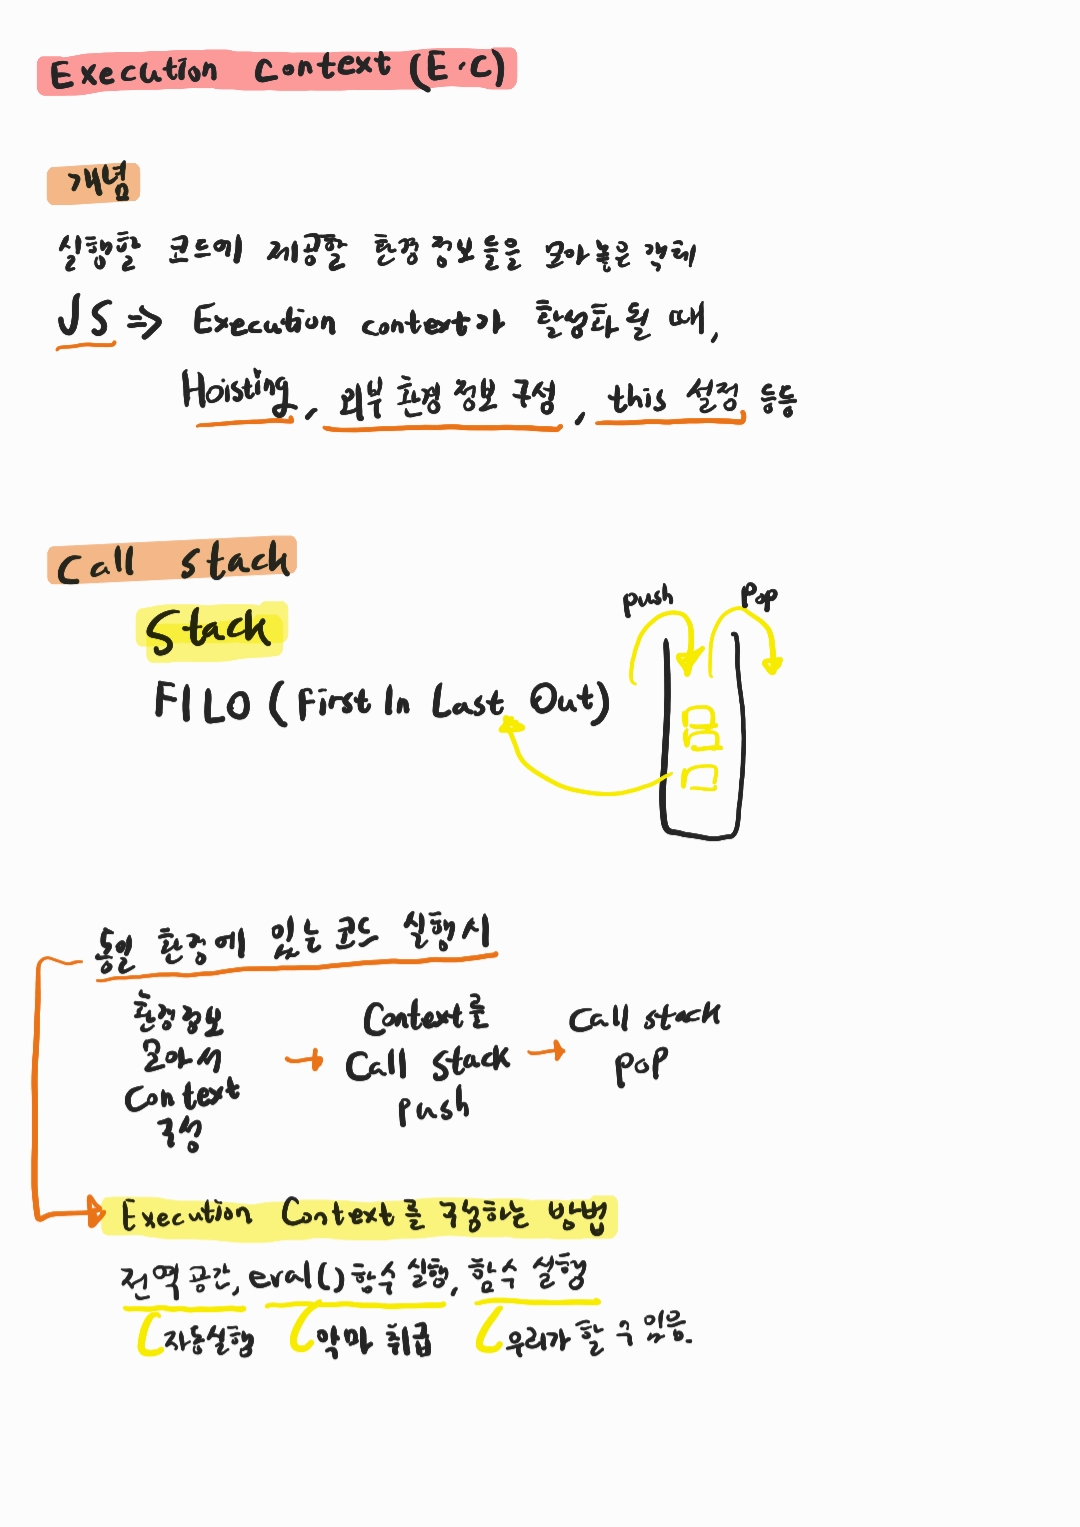 Execution Context (E.C)
개념
실행할 코드에 제공할 환경 정보들을 모아놓은 객체
JS => Execution context가 활성화 될 때,
Hoisting, 외부 환경 정보 구성, this 설정 등등
Call stack
Stack
push
pop
FILO (First In Last Out)
동일 환경에 있는 코드 실행시
환경정보
모아서
Context
구성
→
Context를
Call stack
push
→
Call stack
pop
Execution Context를 구성하는 방법
전역 공간, eval() 함수 실행, 함수 실행
자동실행
악마 취급
우리가 할 수 있음.